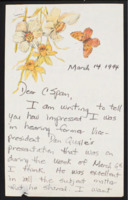 March 14, 1994
Dear C-Span,
I am writing to tell
you how impressed I was
in hearing former Vice-
president Dan Quayle's
presentation that was on
during the week of March
I think. He was excellent
in all the subject matter
that he shared. I want